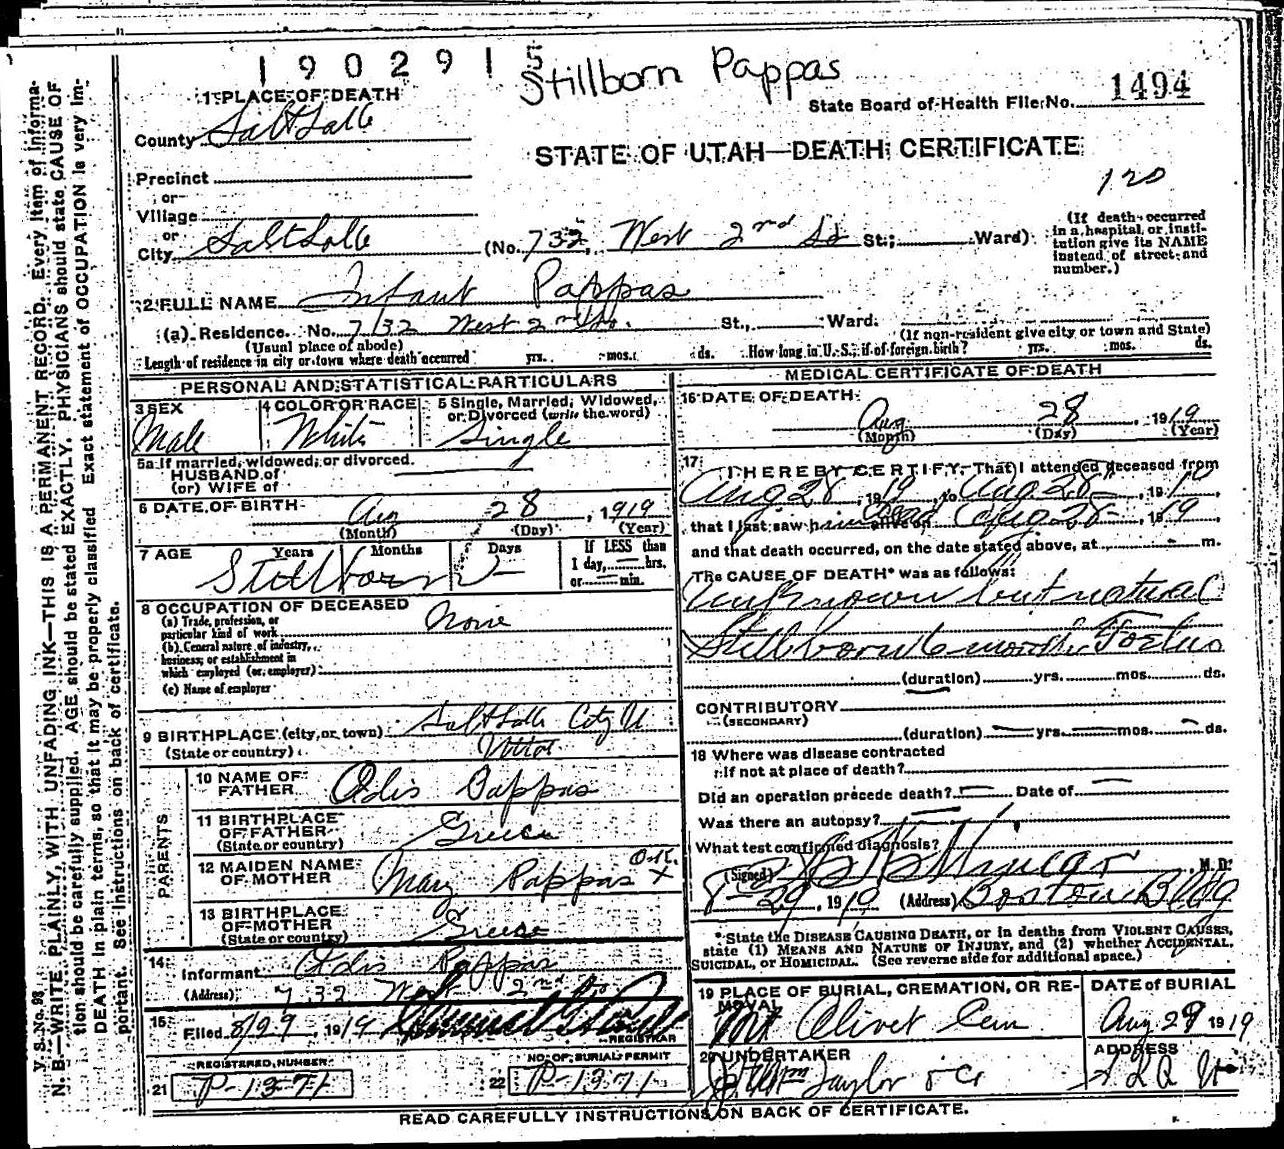 1902915
Stillborn Pappas
State Board of Health File No. 1494
1 PLACE OF DEATH
County Salt Lake
STATE OF UTAH—DEATH CERTIFICATE
120
Precinct
or
Village
or
City Salt Lake (No. 732, West 2nd So St.; Ward)
(If death occurred in a hospital or institution give its NAME instead of street and number.)
2 FULL NAME Infant Pappas
(a) Residence. No. 732 West 2nd So. St., Ward.
(Usual place of abode) (If non-resident give city or town and State)
Length of residence in city or town where death occurred yrs. mos. ds. How long in U. S., if of foreign birth? yrs. mos. ds.
PERSONAL AND STATISTICAL PARTICULARS
3 SEX Male
4 COLOR OR RACE White
5 Single, Married, Widowed, or Divorced (write the word) Single
5a If married, widowed, or divorced.
HUSBAND of
(or) WIFE of
6 DATE OF BIRTH Aug 28, 1919
(Month) (Day) (Year)
7 AGE Years Months Days If LESS than 1 day, hrs. or min.
Stillborn
8 OCCUPATION OF DECEASED
(a) Trade, profession, or particular kind of work None
(b) General nature of industry, business, or establishment in which employed (or employer)
(c) Name of employer
9 BIRTHPLACE (city, or town) Salt Lake City U
(State or country)
PARENTS
10 NAME OF FATHER Adis Pappas
11 BIRTHPLACE OF FATHER (State or country) Greece
12 MAIDEN NAME OF MOTHER Mary Pappas O.K. X
13 BIRTHPLACE OF MOTHER (State or country) Greece
14 Informant Adis Pappas
(Address) 732 West 2nd So
15 Filed 8/29, 1919
REGISTRAR
REGISTERED NUMBER
21 P-1371
NO. OF BURIAL PERMIT
22 P-1371
MEDICAL CERTIFICATE OF DEATH
16 DATE OF DEATH
Aug 28, 1919
(Month) (Day) (Year)
17 I HEREBY CERTIFY, That I attended deceased from
Aug 28, 1919, to Aug 28, 1919,
that I last saw him dead alive on Aug 28, 1919
and that death occurred, on the date stated above, at m.
The CAUSE OF DEATH* was as follows:
Unknown but natural
Stillborn 6 months Foetus
(duration) yrs. mos. ds.
CONTRIBUTORY
(SECONDARY)
(duration) yrs. mos. ds.
18 Where was disease contracted
if not at place of death?
Did an operation precede death? Date of
Was there an autopsy?
What test confirmed diagnosis?
(Signed) M. D.
8-29, 1919 (Address) Boston Bldg
* State the DISEASE CAUSING DEATH, or in deaths from VIOLENT CAUSES,
state (1) MEANS AND NATURE OF INJURY, and (2) whether ACCIDENTAL,
SUICIDAL, or HOMICIDAL. (See reverse side for additional space.)
19 PLACE OF BURIAL, CREMATION, OR REMOVAL
Mt Olivet Cem
DATE of BURIAL
Aug 29 1919
20 UNDERTAKER
Taylor & Co
ADDRESS
READ CAREFULLY INSTRUCTIONS ON BACK OF CERTIFICATE.
V. S. No. 98
N. B.—WRITE PLAINLY, WITH UNFADING INK—THIS IS A PERMANENT RECORD. Every item of information should be carefully supplied. AGE should be stated EXACTLY. PHYSICIANS should state CAUSE OF DEATH in plain terms, so that it may be properly classified. Exact statement of OCCUPATION is very important. See instructions on back of certificate.